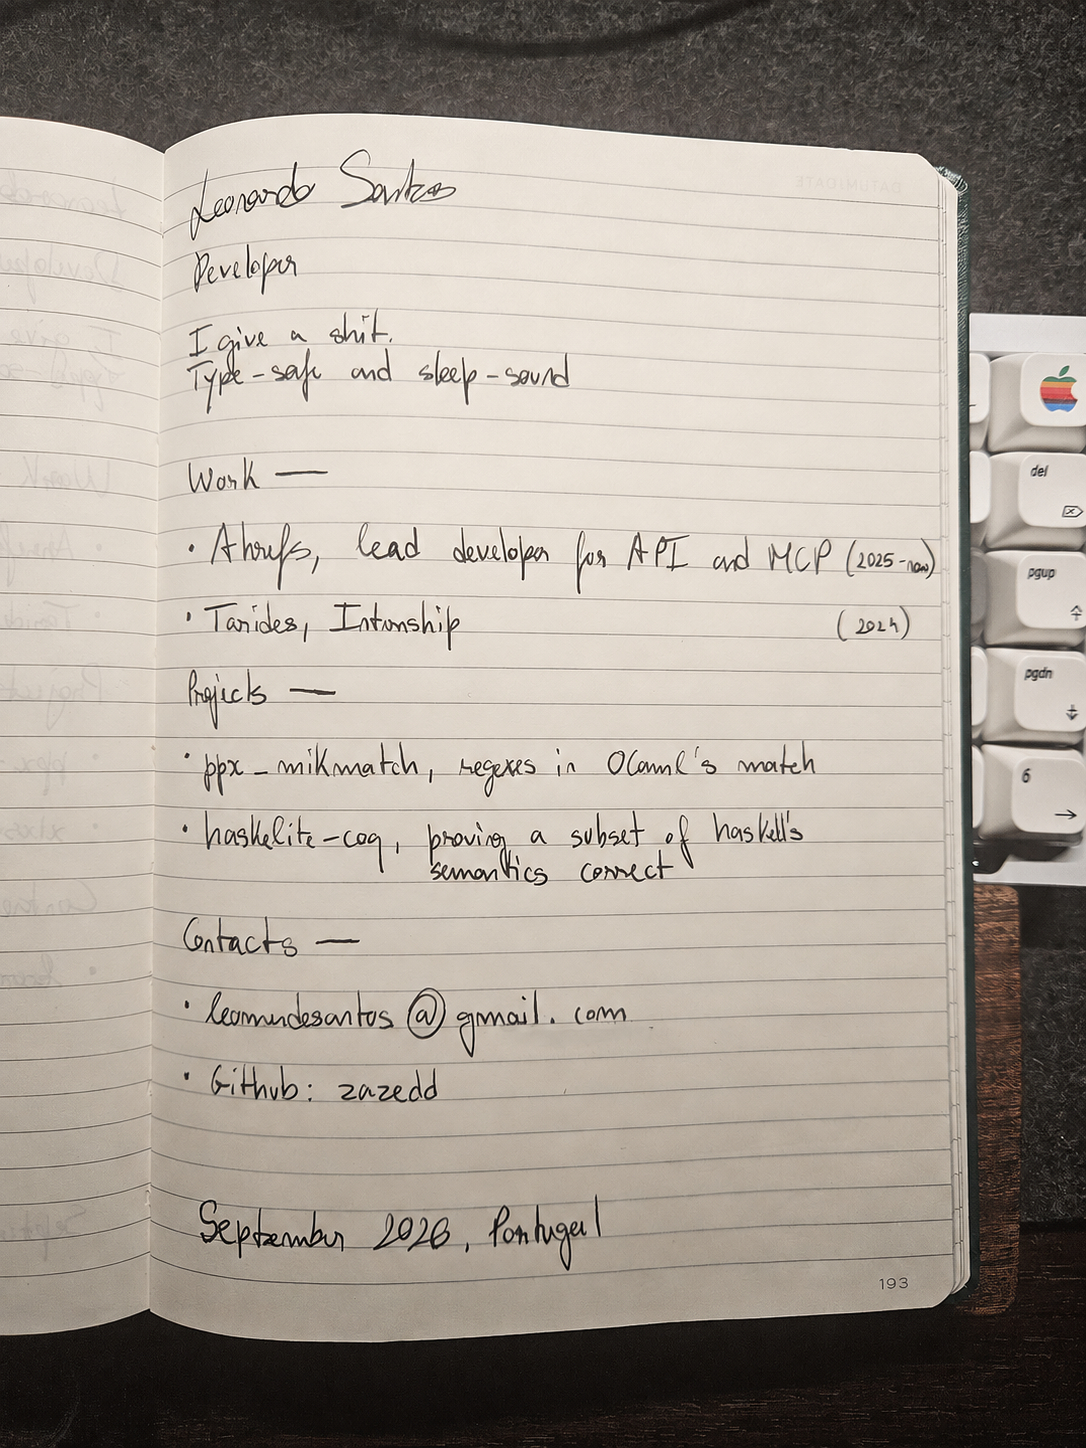 Leonardo Santos
Developer
I give a shit.
Type-safe and sleep-sound
Work —
• Ahrefs, lead developer for API and MCP (2025-now)
• Tarides, Internship (2024)
Projects —
• ppx_mikmatch, regexes in OCaml's match
• haskelite-coq, proving a subset of haskell's
semantics correct
Contacts —
• @gmail.com
• Github: zazedd
September 2026, Portugal
193
del
pgup
pgdn
6